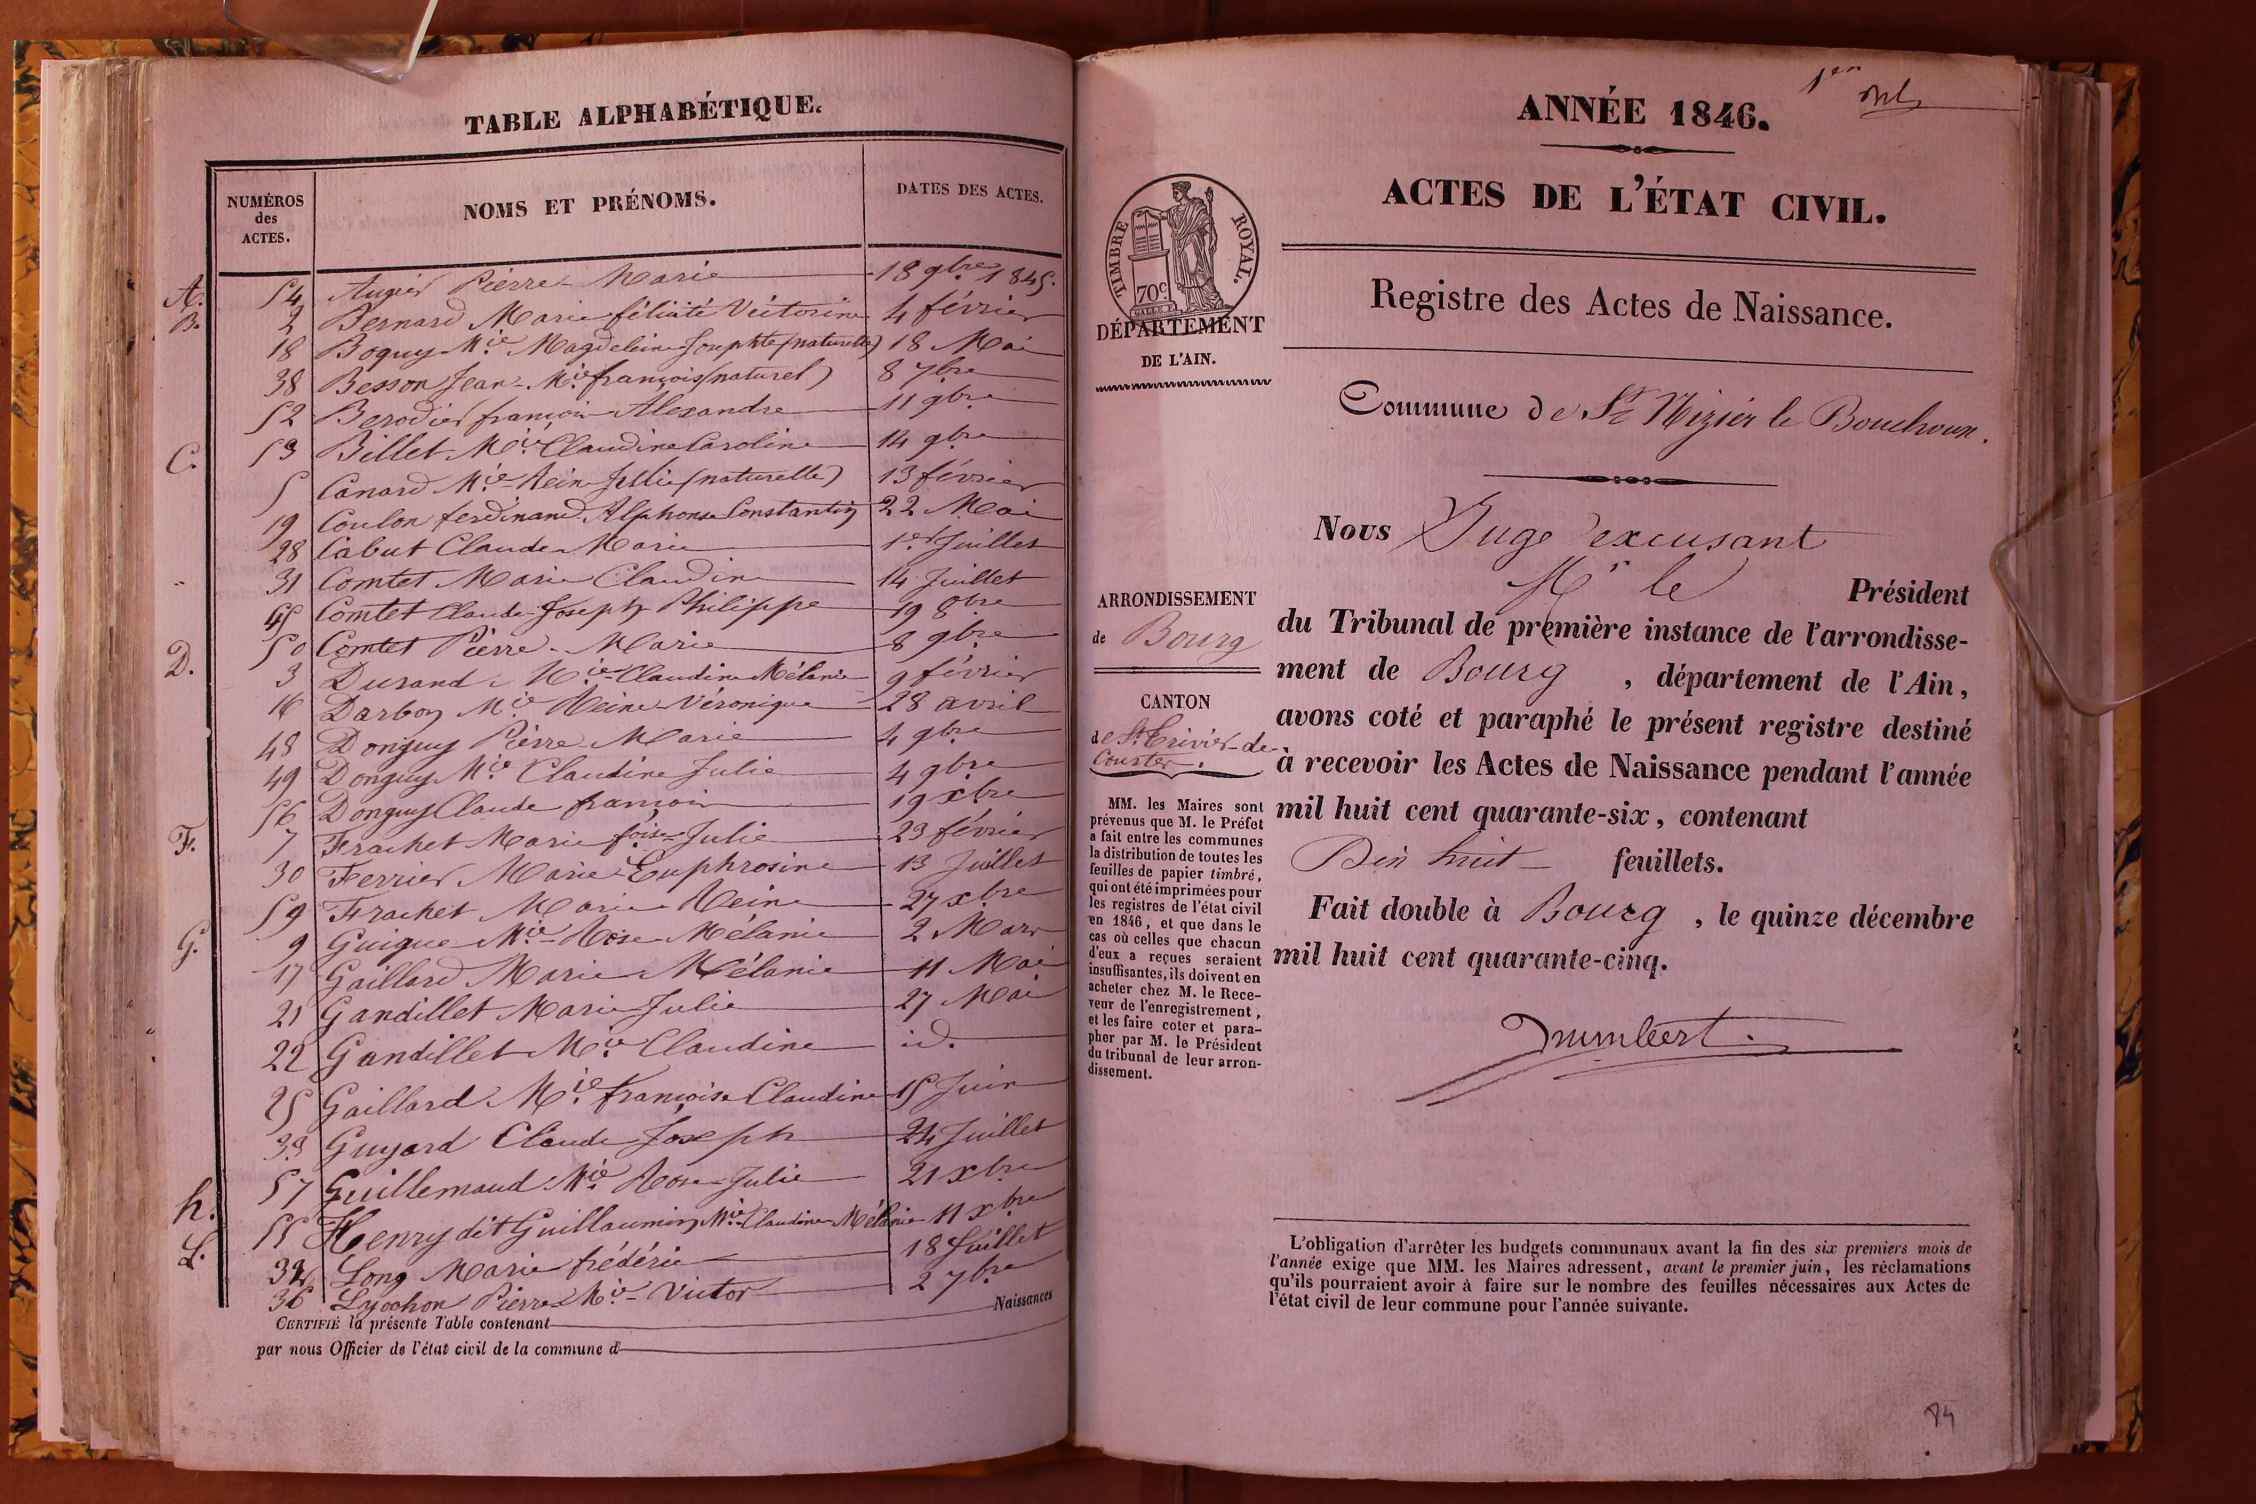 TABLE ALPHABÉTIQUE.
NUMÉROS des ACTES. NOMS ET PRÉNOMS. DATES DES ACTES.
A. 54 Augier Pierre Marie 18 9bre 1845.
B. 2 Bernard Marie félicité Victorine 4 février
18 Boguy Mie Magdeleine Josephte (naturelle) 18 Mai
38 Besson Jean Mie françois (naturel) 8 7bre
52 Berodier françois Alexandre 11 9bre
53 Billet Mie Claudine Caroline 14 9bre
C. 5 Canard Mie Reine Julie (naturelle) 13 février
19 Coulon ferdinand Alphonse Constantin 22 Mai
28 Cabut Claude Marie 1er Juillet
31 Comtet Marie Claudine 14 Juillet
45 Comtet Claude Joseph Philippe 19 8bre
50 Comtet Pierre Marie 8 9bre
D. 3 Durand Mie Claudine Mélanie 9 février
16 Darbon Mie Reine Véronique 28 avril
48 Donguy Pierre Marie 4 9bre
49 Donguy Mie Claudine Julie 4 9bre
56 Donguy Claude françois 19 xbre
F. 7 Frachet Marie foise Julie 23 février
30 Ferrier Marie Euphrosine 13 Juillet
59 Frachet Marie Reine 27 xbre
G. 9 Guigue Mie Rose Mélanie 2 Mars
17 Gaillard Marie Mélanie 11 Mai
21 Gandillet Marie Julie 27 Mai
22 Gandillet Mie Claudine id.
25 Gaillard Mie françoise Claudine 15 Juin
33 Guyard Claude Joseph 24 Juillet
57 Guillemaud Mie Rose Julie 21 xbre
h. 55 Henry dit Guillaumin Mie Claudine Mélanie 11 xbre
L. 32 Long Marie frédéric 18 Juillet
36 Lyochon Pierre Mie Victor 2 7bre
CERTIFIÉ la présente Table contenant Naissances
par nous Officier de l'état civil de la commune d
1er
ANNÉE 1846.
ACTES DE L'ÉTAT CIVIL.
TIMBRE ROYAL.
70c
DÉPARTEMENT
DE L'AIN.
Registre des Actes de Naissance.
Commune de St Nizier le Bouchoux.
Nous Juge excusant
Mr le Président
du Tribunal de première instance de l'arrondisse-
ment de Bourg , département de l'Ain,
avons coté et paraphé le présent registre destiné
à recevoir les Actes de Naissance pendant l'année
mil huit cent quarante-six, contenant
Dix huit feuillets.
Fait double à Bourg , le quinze décembre
mil huit cent quarante-cinq.
ARRONDISSEMENT
de Bourg
CANTON
de St Trivier de
Courtes.
MM. les Maires sont
prévenus que M. le Préfet
a fait entre les communes
la distribution de toutes les
feuilles de papier timbré,
qui ont été imprimées pour
les registres de l'état civil
en 1846, et que dans le
cas où celles que chacun
d'eux a reçues seraient
insuffisantes, ils doivent en
acheter chez M. le Rece-
veur de l'enregistrement,
et les faire coter et para-
pher par M. le Président
du tribunal de leur arron-
dissement.
L'obligation d'arrêter les budgets communaux avant la fin des six premiers mois de
l'année exige que MM. les Maires adressent, avant le premier juin, les réclamations
qu'ils pourraient avoir à faire sur le nombre des feuilles nécessaires aux Actes de
l'état civil de leur commune pour l'année suivante.
84